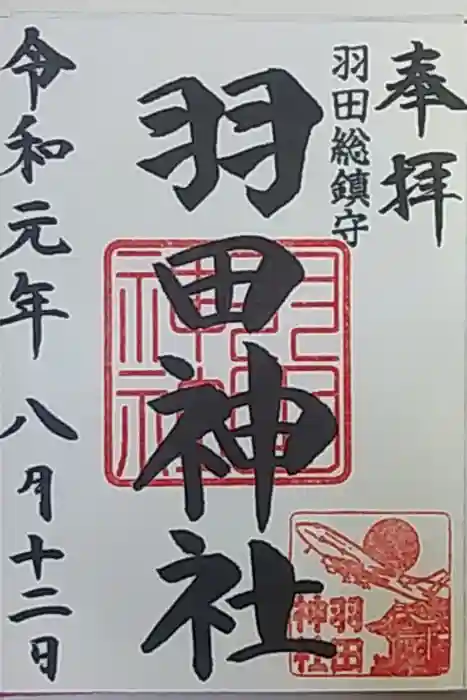 奉拝
羽田総鎮守
羽田神社
令和元年八月十二日
羽田
神社
羽田
神社